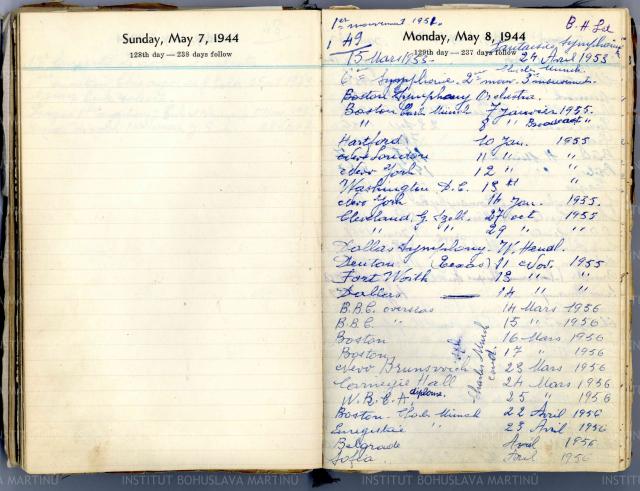 Sunday, May 7, 1944
128th day — 238 days follow
1er mouvement 1951.
B. H. Sd
1 49
Monday, May 8, 1944
Fantaisies Symphoniques
15 Mars 1955
129th day — 237 days follow
24 Avril 1953
Charles Munch
6me Symphonie. 2me mouv. 3me mouvement.
Boston Symphony Orchestra.
Boston Charles Munch 7 Janvier 1955.
" 8 " Broadcast "
Hartford 10 Jan. 1955
New London 11 " "
New York 12 " "
Washington D.C. 13 "
New York 14 Jan. 1955.
Cleveland G. Szell. 27 oct 1955
" " 29 " "
Dallas Symphony W. Hendl.
Denton (Texas) 11 Nov. 1955
Fort Worth 13 " "
Dallas — 14 " "
B.B.C. overseas 14 Mars 1956
B.B.C. " 15 " 1956
Boston 16 Mars 1956
Boston 17 " 1956
New Brunswick 23 Mars 1956
Carnegie Hall 24 Mars 1956
Charles Munch
cond.
W.B.C.A. diploma. 25 " 1956
Boston. Charles Munch 22 Avril 1956
Enregistré 23 Avril 1956
Belgrade Avril 1956
Sofia 1956
INSTITUT BOHUSLAVA MARTINŮ INSTITUT BOHUSLAVA MARTINŮ